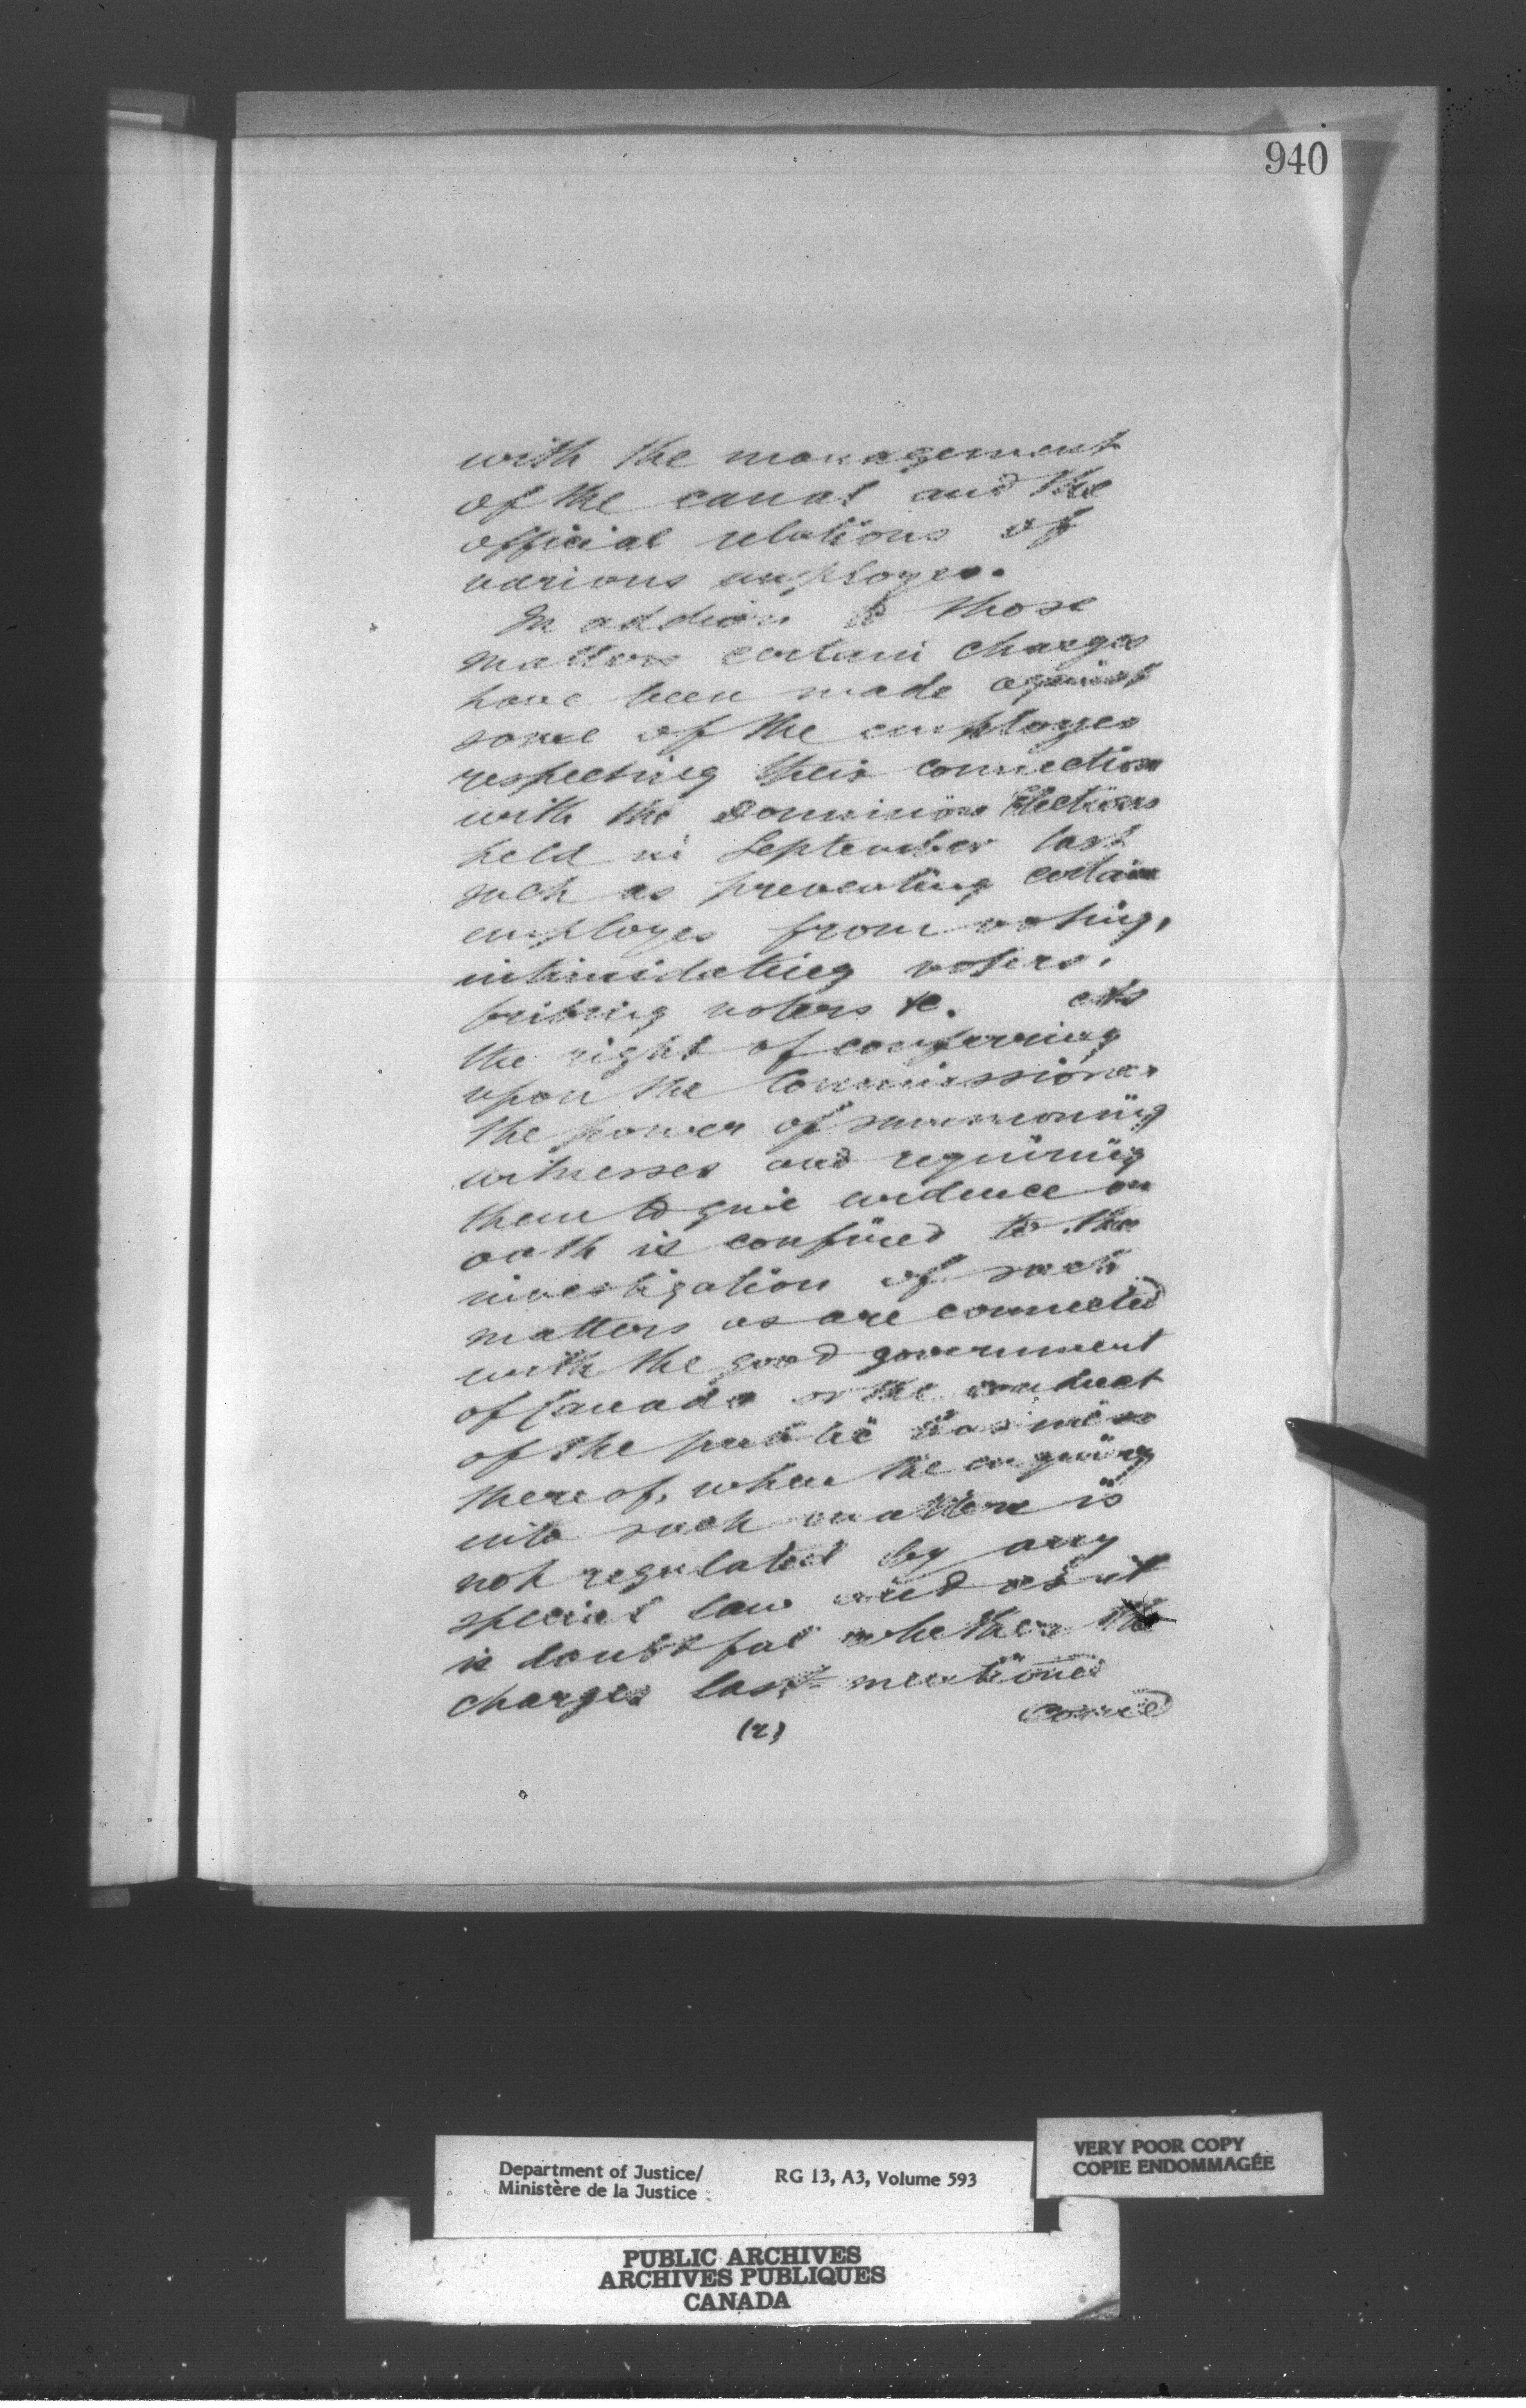 940
with the management
of the canal and the
official relations of
various employes.
In addion to those
matters certain charges
have been made against
some of the employes
respecting their connection
with the Dominion Elections
held in September last
such as preventing certain
employes from voting,
intimidating voters,
bribing voters &c. As
the right of conferring
upon the Commissioner
the power of summoning
witnesses and requiring
them to give evidence on
oath is confined to the
investigation of such
matters as are connected
with the good government
of Canada or the conduct
of the public business
thereof, when the enquiry
into such matters is
not regulated by any
special law and as it
is doubtful whether the
charges last mentioned
(2)
Department of Justice/
Ministère de la Justice
RG 13, A3, Volume 593
VERY POOR COPY
COPIE ENDOMMAGÉE
PUBLIC ARCHIVES
ARCHIVES PUBLIQUES
CANADA